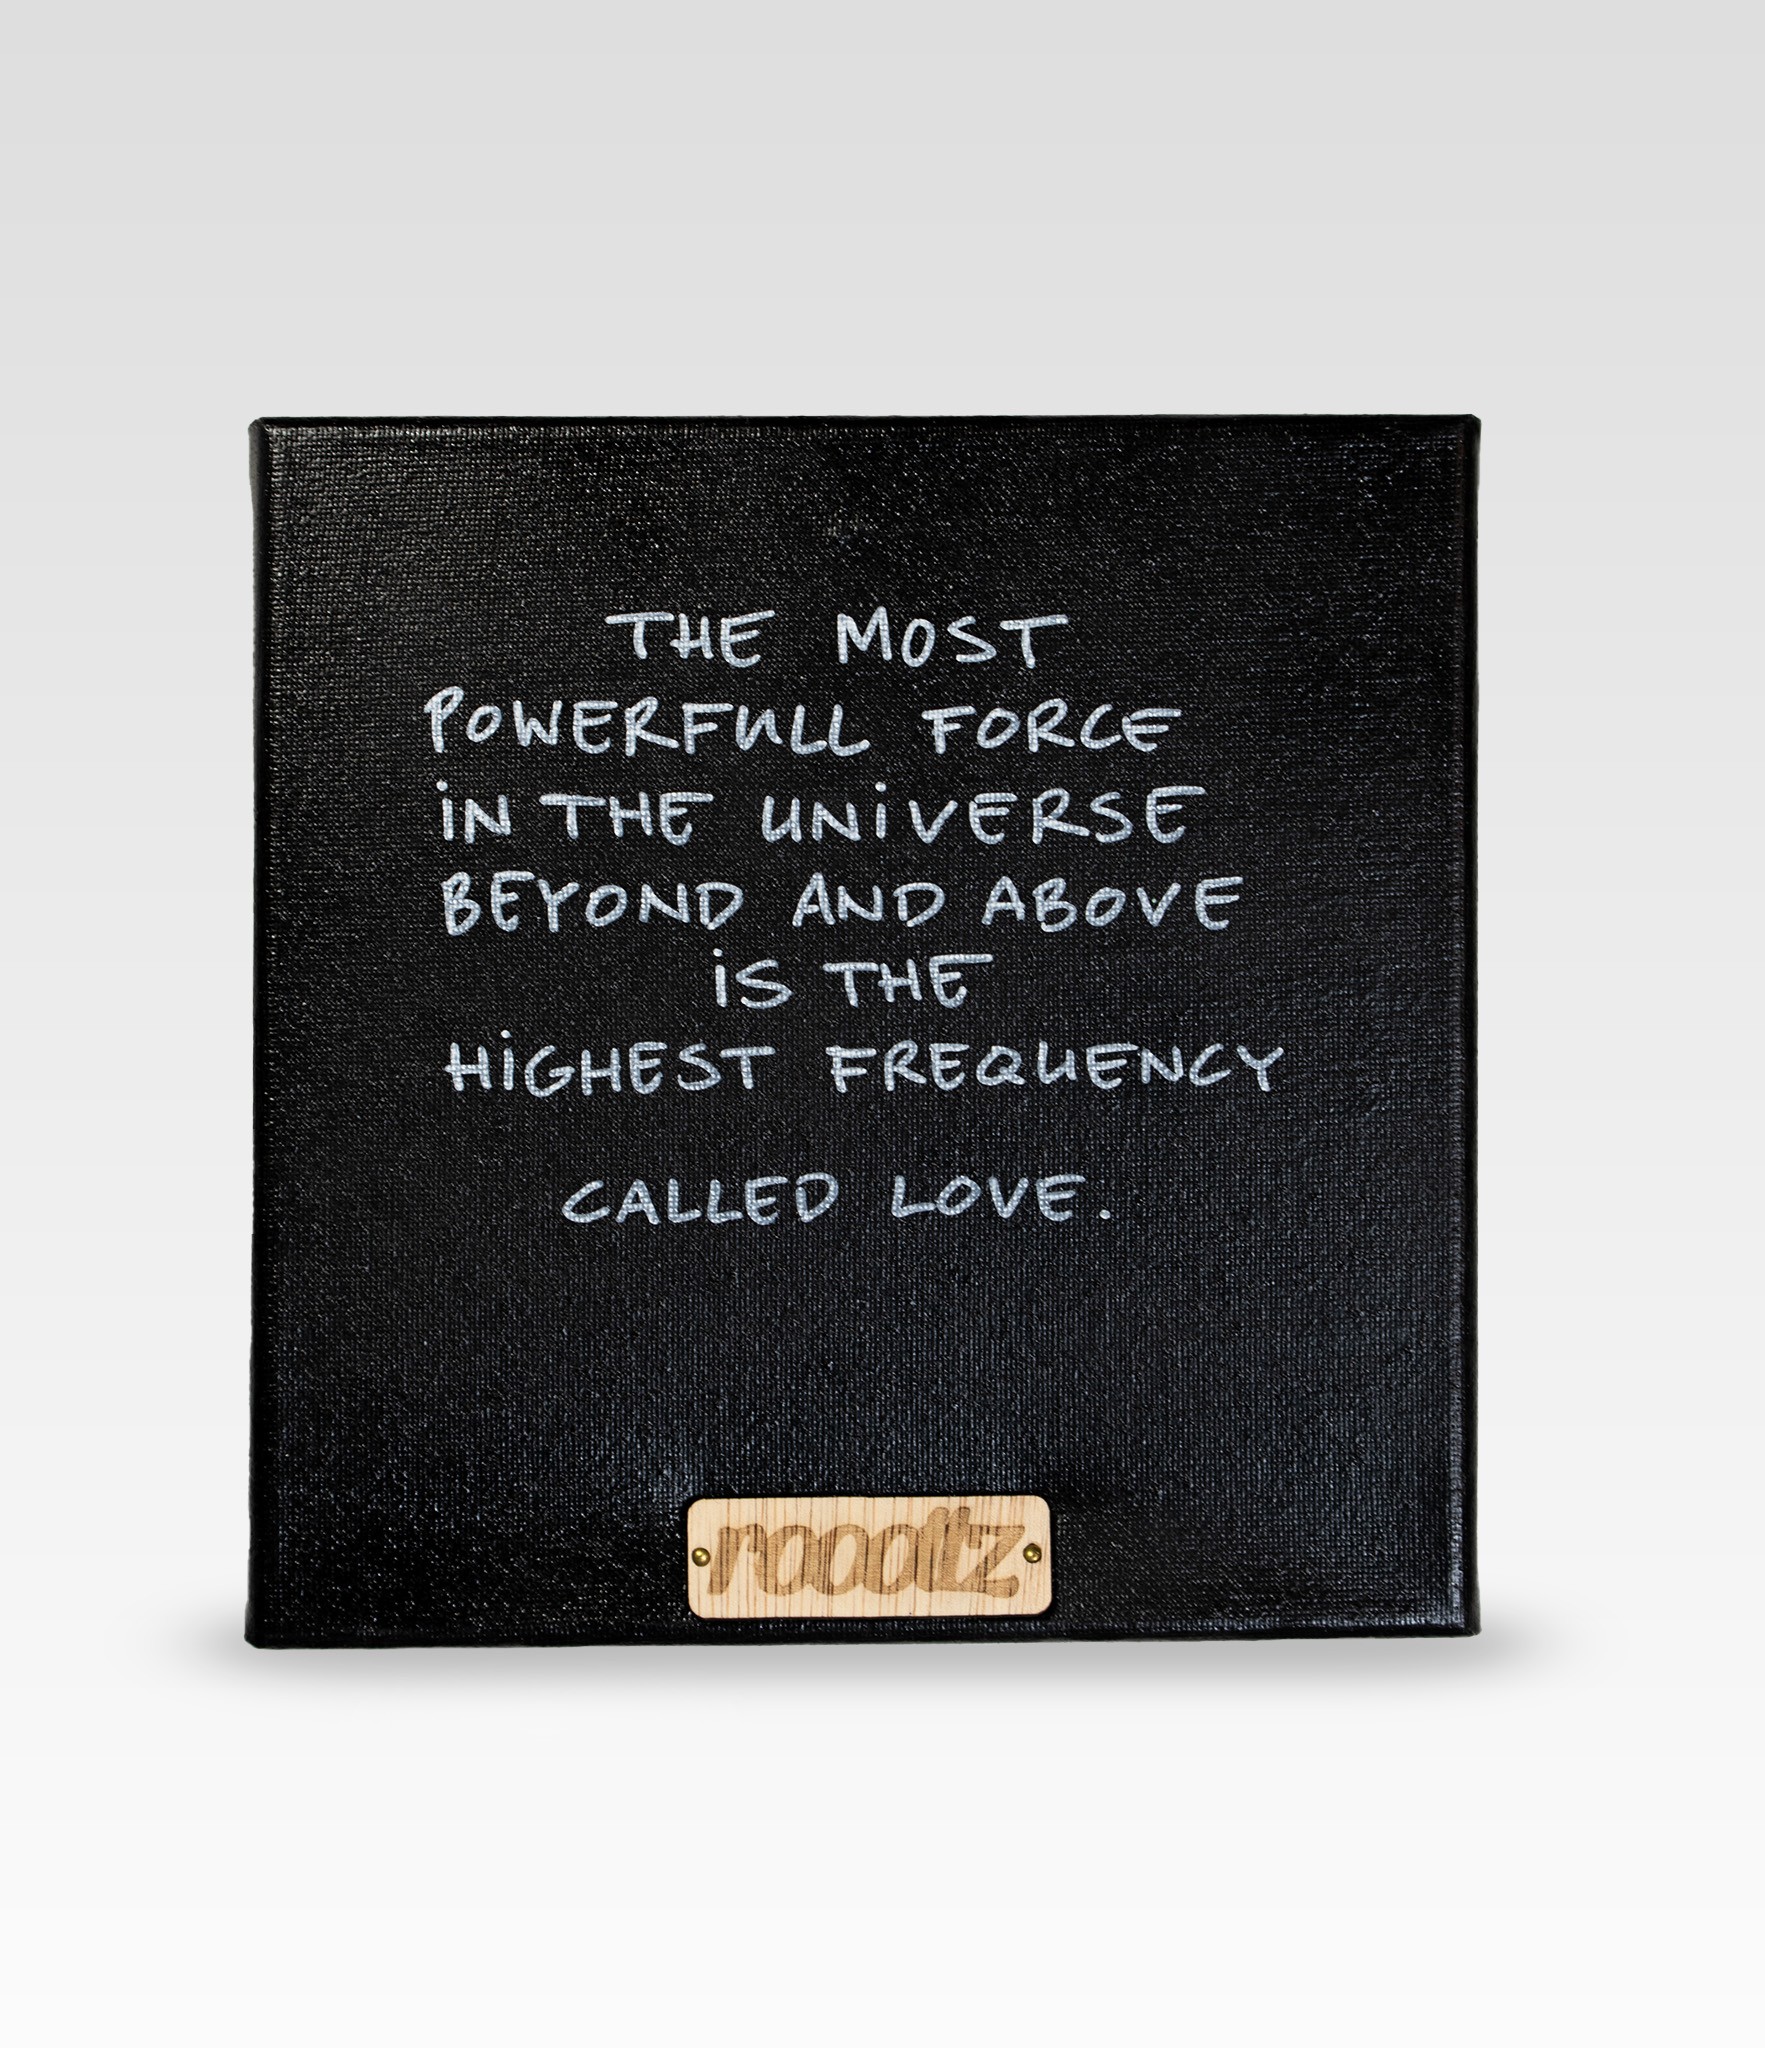 THE MOST
POWERFULL FORCE
iN THE UNiVERSE
BEYOND AND ABOVE
iS THE
HiGHEST FREQUENCY
CALLED LOVE.
rooottz